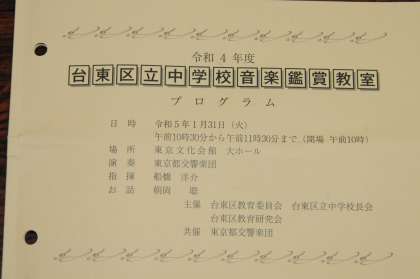 令和4年度
台東区立中学校音楽鑑賞教室
プログラム
日時 令和5年1月31日(火)
午前10時30分から午前11時30分まで(開場 午前10時)
場所 東京文化会館 大ホール
演奏 東京都交響楽団
指揮 船橋 洋介
お話 朝岡 聡
主催 台東区教育委員会 台東区立中学校長会
台東区教育研究会
共催 東京都交響楽団